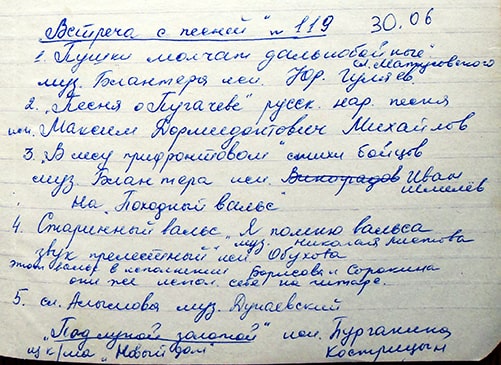 „Встреча с песней" № 119 30.06
1. „Пушки молчат дальнобойные"
сл. Матусовского
муз. Блантера исп. Юр. Гуляев.
2. „Песня о Пугачёве" русск. нар. песня
исп. Максим Дормидонтович Михайлов
3. „В лесу прифронтовом" стихи бойцов
муз. Блантера исп. Виноградов Иван Шмелёв
на „Походный вальс"
4. Старинный вальс „Я помню вальса
звук прелестный" муз. Николая Листова
исп. Обухова
этот вальс в исполнении Борисова и Сорокина
они же испол. себе на гитаре.
5. сл. Алымова муз. Дунаевский
„Под луной золотой" исп. Бурганина
из к/ма „Новый дом" Кострицын